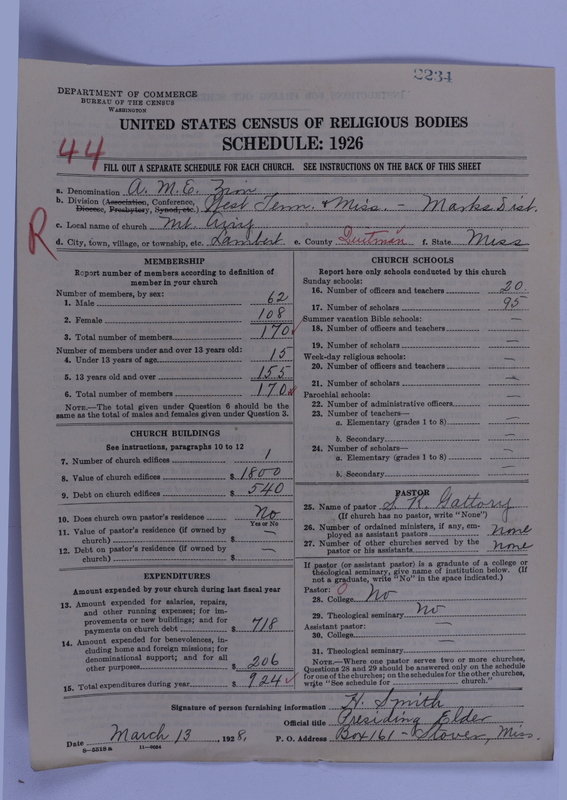 2234
DEPARTMENT OF COMMERCE
BUREAU OF THE CENSUS
WASHINGTON
UNITED STATES CENSUS OF RELIGIOUS BODIES
SCHEDULE: 1926
44
FILL OUT A SEPARATE SCHEDULE FOR EACH CHURCH. SEE INSTRUCTIONS ON THE BACK OF THIS SHEET
a. Denomination A. M. E. Zion
b. Division (Association, Conference, Diocese, Presbytery, Synod, etc.) West Tenn. & Miss. - Marks Dist.
R
c. Local name of church Mt
d. City, town, village, or township, etc. Lambert e. County Quitman f. State Miss
MEMBERSHIP
Report number of members according to definition of
member in your church
Number of members, by sex:
1. Male 62
2. Female 108
3. Total number of members 170
Number of members under and over 13 years old:
4. Under 13 years of age 15
5. 13 years old and over 155
6. Total number of members 170
NOTE.—The total given under Question 6 should be the
same as the total of males and females given under Question 3.
CHURCH BUILDINGS
See instructions, paragraphs 10 to 12
7. Number of church edifices 1
8. Value of church edifices $ 1800
9. Debt on church edifices $ 540
10. Does church own pastor's residence No
Yes or No
11. Value of pastor's residence (if owned by
church) $ —
12. Debt on pastor's residence (if owned by
church) $ —
EXPENDITURES
Amount expended by church during last fiscal year
13. Amount expended for salaries, repairs,
and other running expenses; for im-
provements or new buildings; and for
payments on church debt $ 718
14. Amount expended for benevolences, in-
cluding home and foreign missions; for
denominational support; and for all
other purposes $ 206
15. Total expenditures during year $ 924
CHURCH SCHOOLS
Report here only schools conducted by this church
Sunday schools:
16. Number of officers and teachers 20
17. Number of scholars 95
Summer vacation Bible schools:
18. Number of officers and teachers —
19. Number of scholars —
Week-day religious schools:
20. Number of officers and teachers —
21. Number of scholars —
Parochial schools:
22. Number of administrative officers —
23. Number of teachers—
a. Elementary (grades 1 to 8) —
b. Secondary —
24. Number of scholars—
a. Elementary (grades 1 to 8) —
b. Secondary —
PASTOR
25. Name of pastor S. R.
(If church has no pastor, write "None")
26. Number of ordained ministers, if any, em-
ployed as assistant pastors none
27. Number of other churches served by the
pastor or his assistants none
If pastor (or assistant pastor) is a graduate of a college or
theological seminary, give name of institution below. (If
not a graduate, write "No" in the space indicated.)
Pastor: 0
28. College No
29. Theological seminary No
Assistant pastor: —
30. College —
31. Theological seminary
NOTE.—Where one pastor serves two or more churches,
Questions 28 and 29 should be answered only on the schedule
for one of the churches; on the schedules for the other churches,
write "See schedule for church."
Signature of person furnishing information H. Smith
Official title Presiding Elder
Date March 13, 1928, P. O. Address Box 161 - Stover, Miss.
8-5518a 11-9034